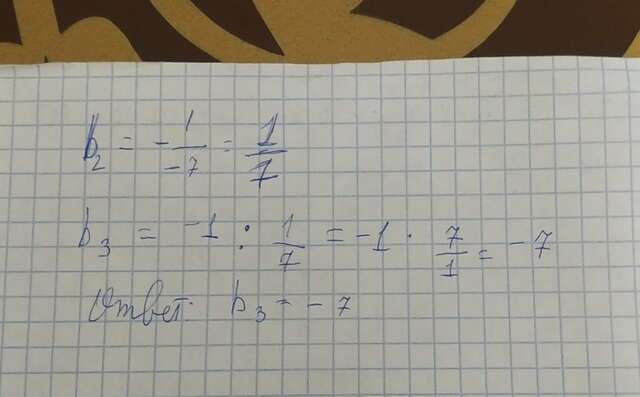 b₂ = -1/-7 = 1/7
b₃ = -1 : 1/7 = -1 · 7/1 = -7
Ответ: b₃ = -7